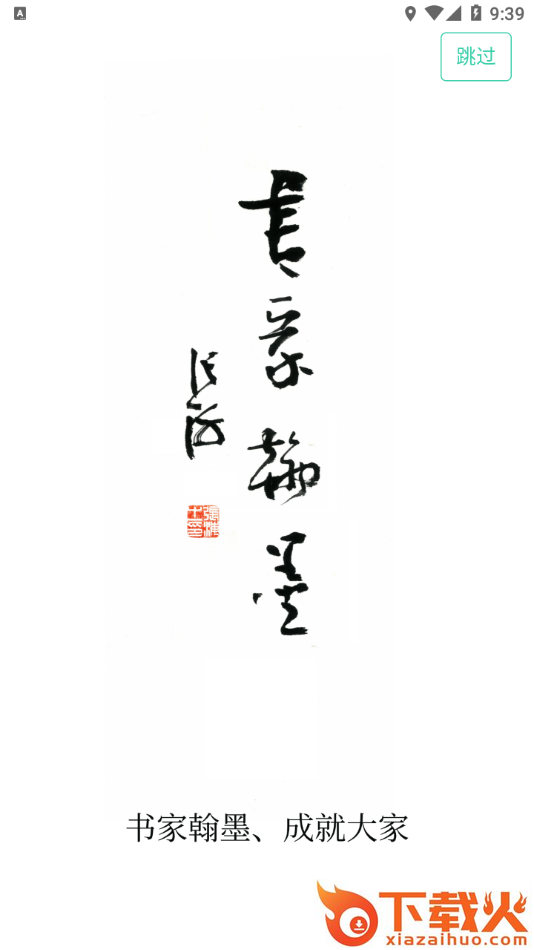 9:39
跳过
書家翰墨
书家翰墨、成就大家
下载火
xiazaihuo.com